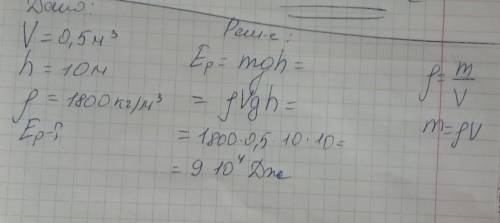 Дано:
V = 0,5 м³
h = 10 м
ρ = 1800 кг/м³
Ep = ?
Реш-е:
Ep = mgh =
= ρVgh =
= 1800 · 0,5 · 10 · 10 =
= 9 · 10⁴ Дж
ρ = m/V
m = ρV